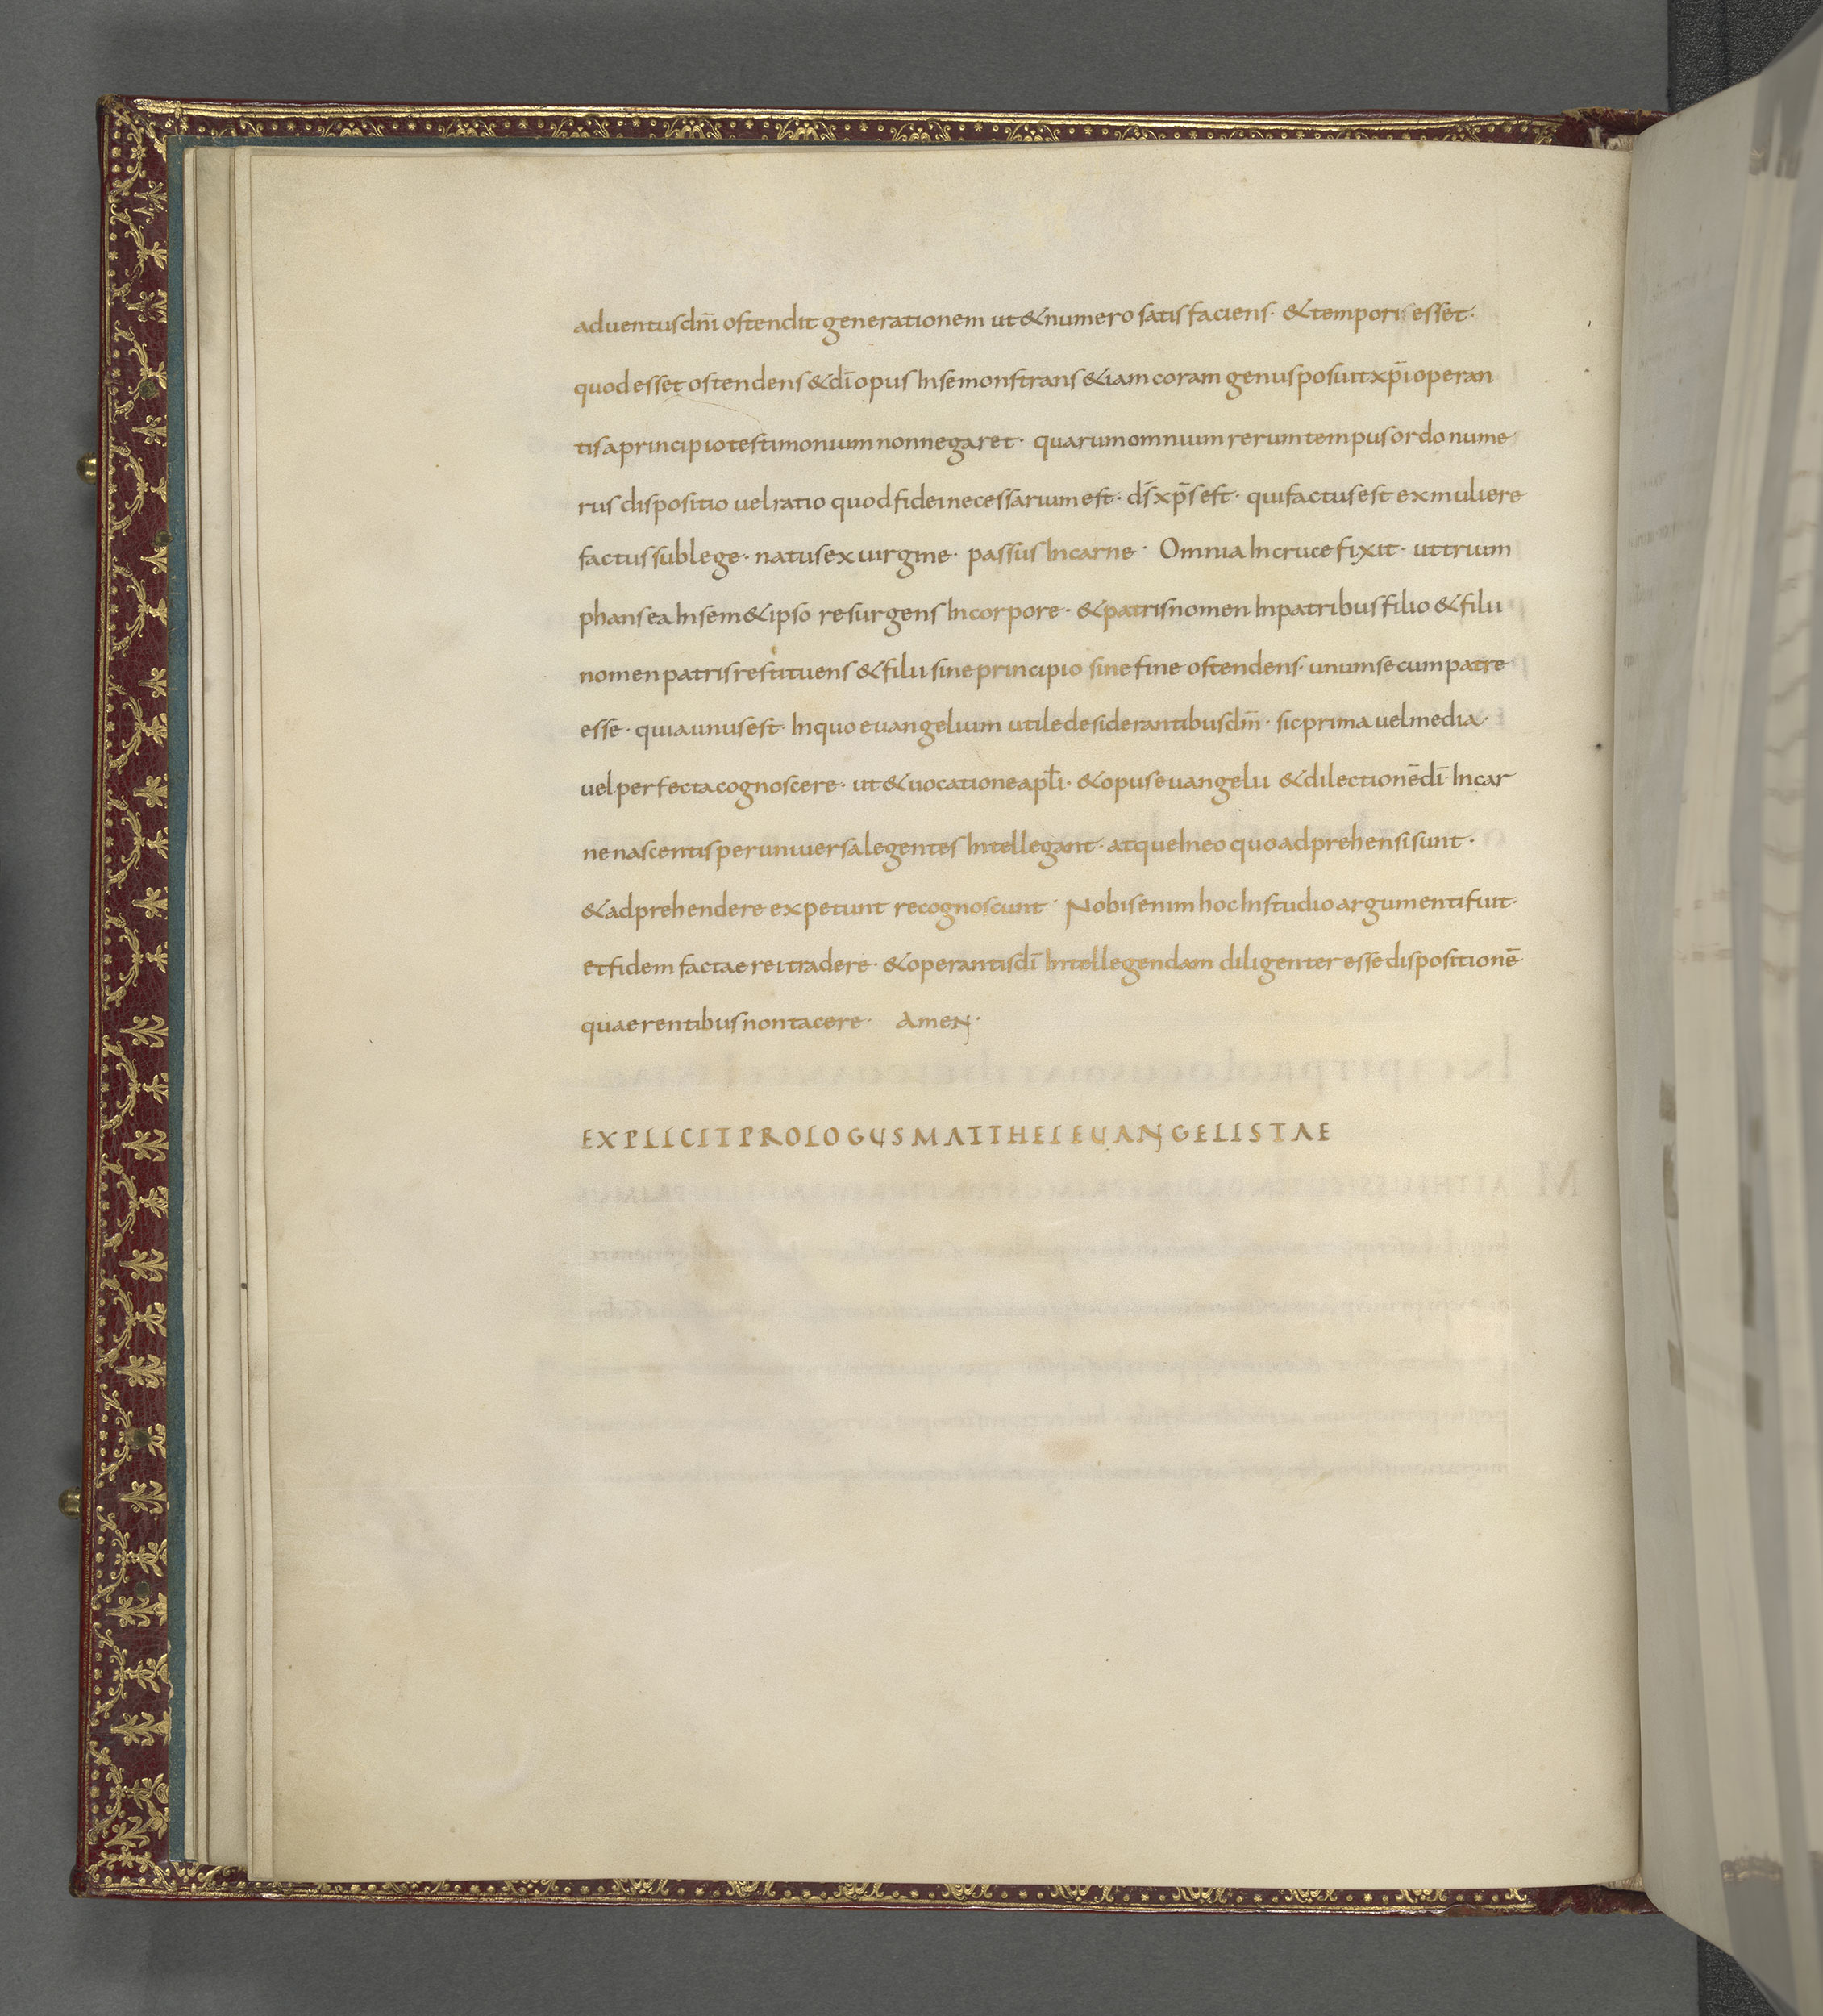 aduentus dn̄i ostendit generationem ut & numero satis faciens · & tempori esset ·
quod esset ostendens & dī opus In se monstrans & iam coram genus posuit xp̄i operan
tis a principio testimonium non negaret · quarum omnium rerum tempus ordo nume
rus dispositio uel ratio quod fidei necessarium est · dſ̄ xp̄s est · qui factus est ex muliere
factus sub lege · natus ex uirgine · passus In carne · Omnia In cruce fixit · ut trium
phans ea In sem&ipso resurgens In corpore · & patris nomen In patribus filio & filii
nomen patris restituens & filii sine principio sine fine ostendens · unum se cum patre
esse · quia unus est · In quo euangelium utile desiderantibus dm̄ · sic prima uel media ·
uel perfecta cognoscere · ut & uocatione apłi · & opus euangelii & dilectionē dī In car
ne nascentis per uniuersa legentes Intellegant · atque In eo quo adprehensi sunt ·
& adprehendere expetunt recognoscunt · Nobis enim hoc In studio argumenti fuit ·
et fidem factae rei tradere · & operantis dī Intellegendam diligenter esse dispositionē
quaerentibus non tacere · AmeN ·
EXPLICIT PROLOGUS MATTHEI EUANGELISTAE